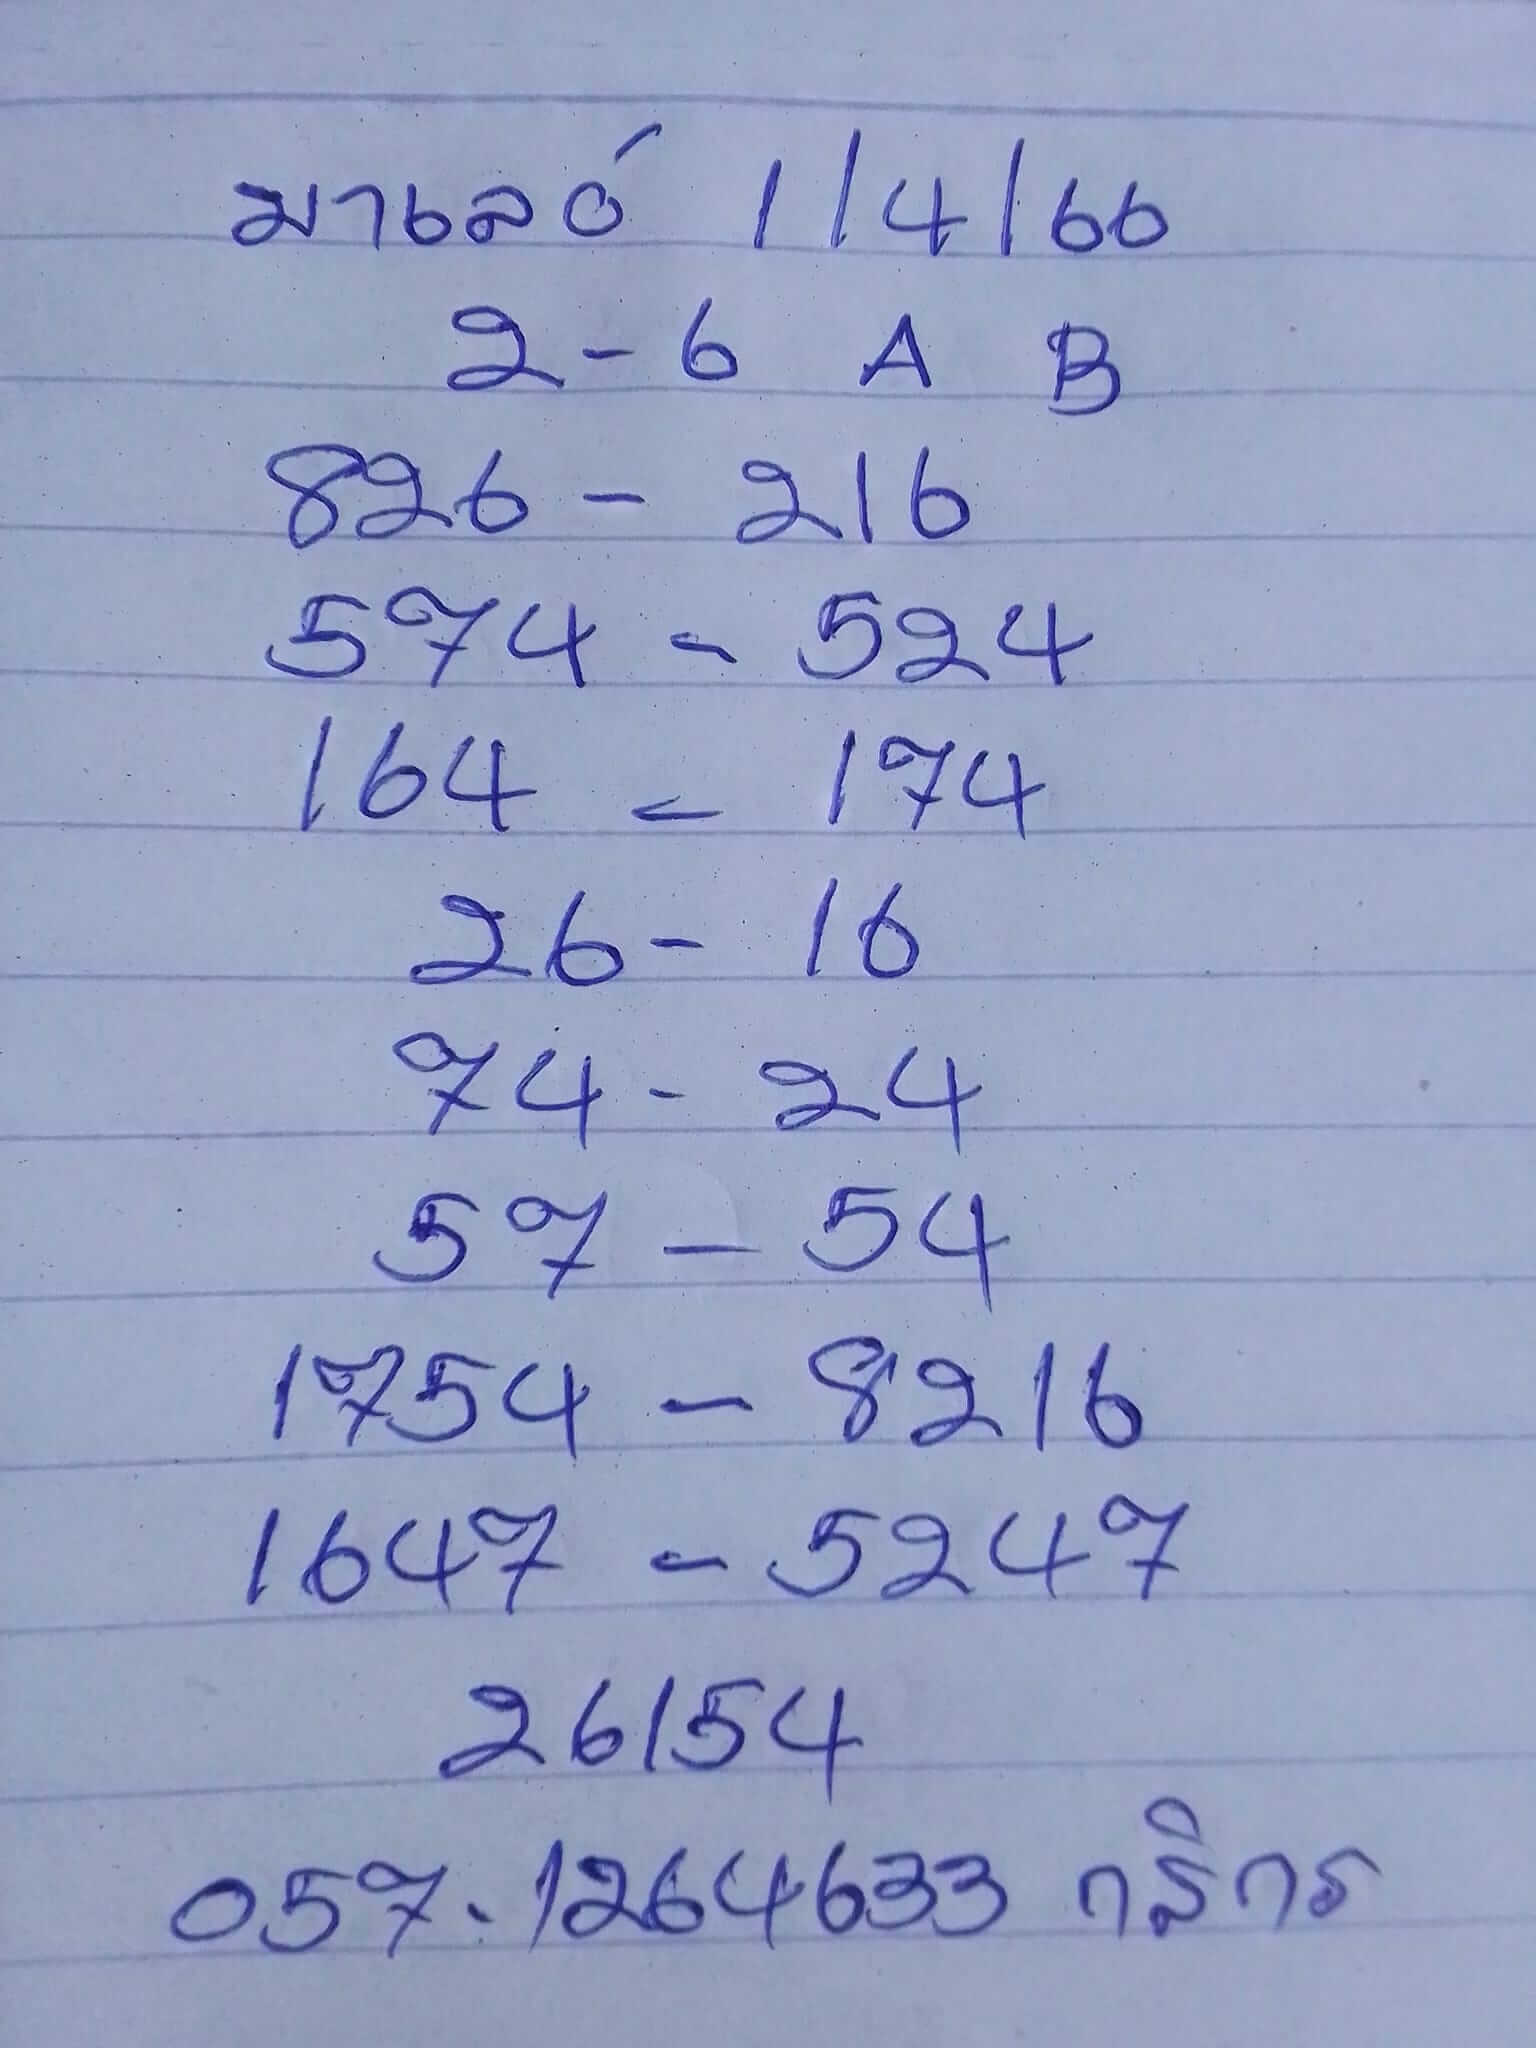 มาเลย์ 1/4/66
2-6 A B
826 - 216
574 - 524
164 - 174
26 - 16
74 - 24
57 - 54
1754 - 8216
1647 - 5247
26154
057-1264633 กสิกร